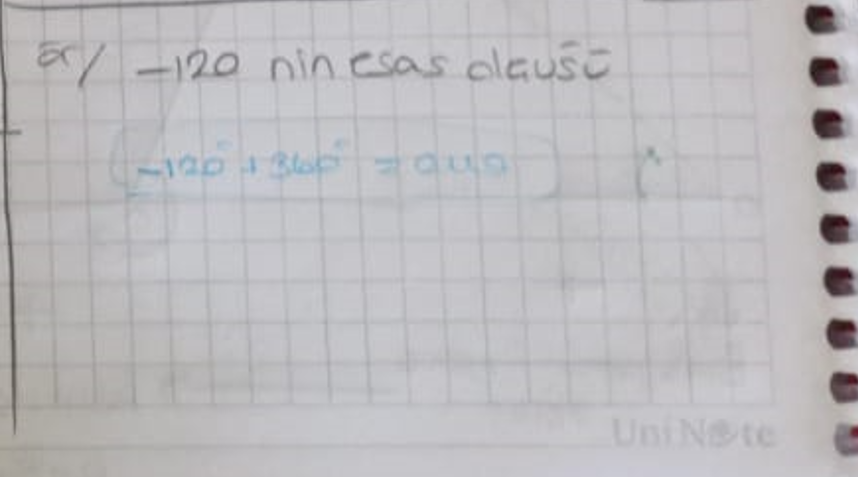 ör/ -120 nin esas ölçüsü
-120° + 360° =
UniNote